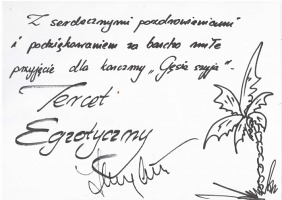 Z serdecznymi pozdrowieniami
i podziękowaniem za bardzo miłe
przyjęcie dla karczmy „Gęsia szyja".
Tercet
Egzotyczny